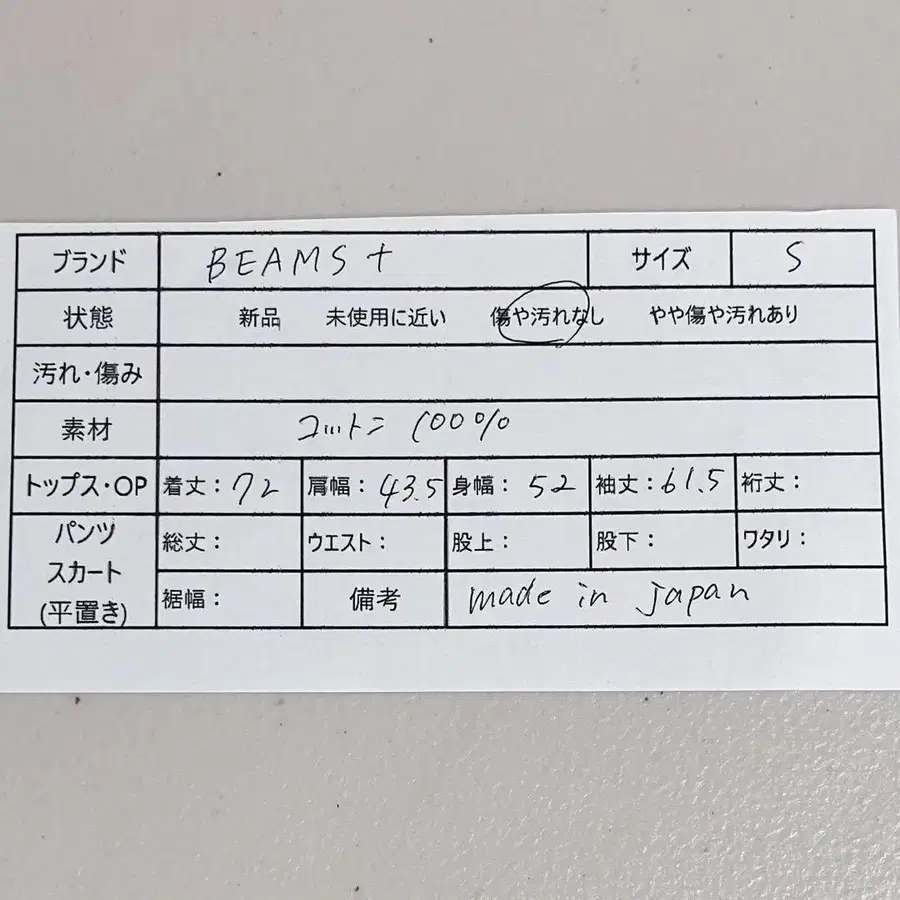 ブランド BEAMS+ サイズ S
状態 新品 未使用に近い 傷や汚れなし やや傷や汚れあり
汚れ・傷み
素材 コットン 100%
トップス・OP 着丈:72 肩幅:43.5 身幅:52 袖丈:61.5 裄丈:
パンツ
スカート
(平置き)
総丈: ウエスト: 股上: 股下: ワタリ:
裾幅: 備考 made in japan